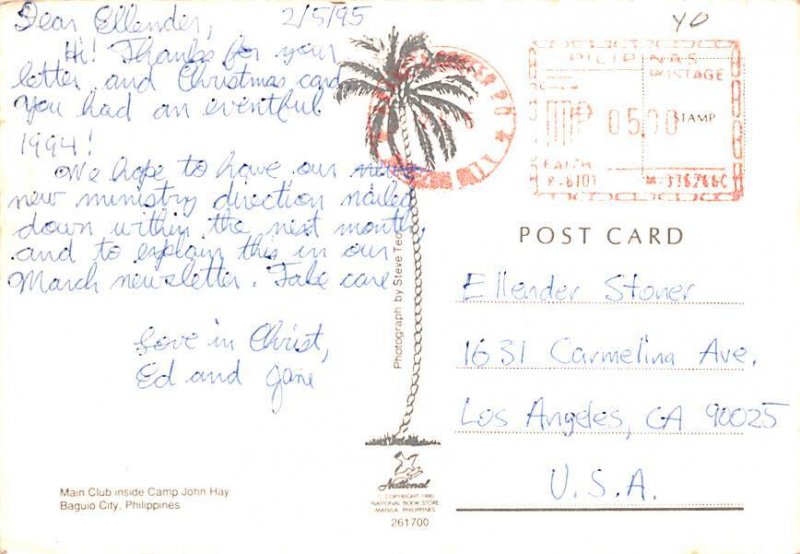 Dear Ellender, 2/5/95
Hi! Thanks for your
letter and Christmas card.
You had an eventful
1994!
We hope to have our
new ministry direction nailed
down within the next month,
and to explain this in our
March newsletter. Take care
Love in Christ,
Ed and Jane
Main Club inside Camp John Hay
Baguio City, Philippines
Photograph by Steve Teo
National
COPYRIGHT 1990
NATIONAL BOOK STORE
MANILA PHILIPPINES
261700
YO
PILIPINAS
POSTAGE
05.00 STAMP
POST CARD
Ellender Stoner
1631 Carmelina Ave.
Los Angeles, CA 90025
U.S.A.